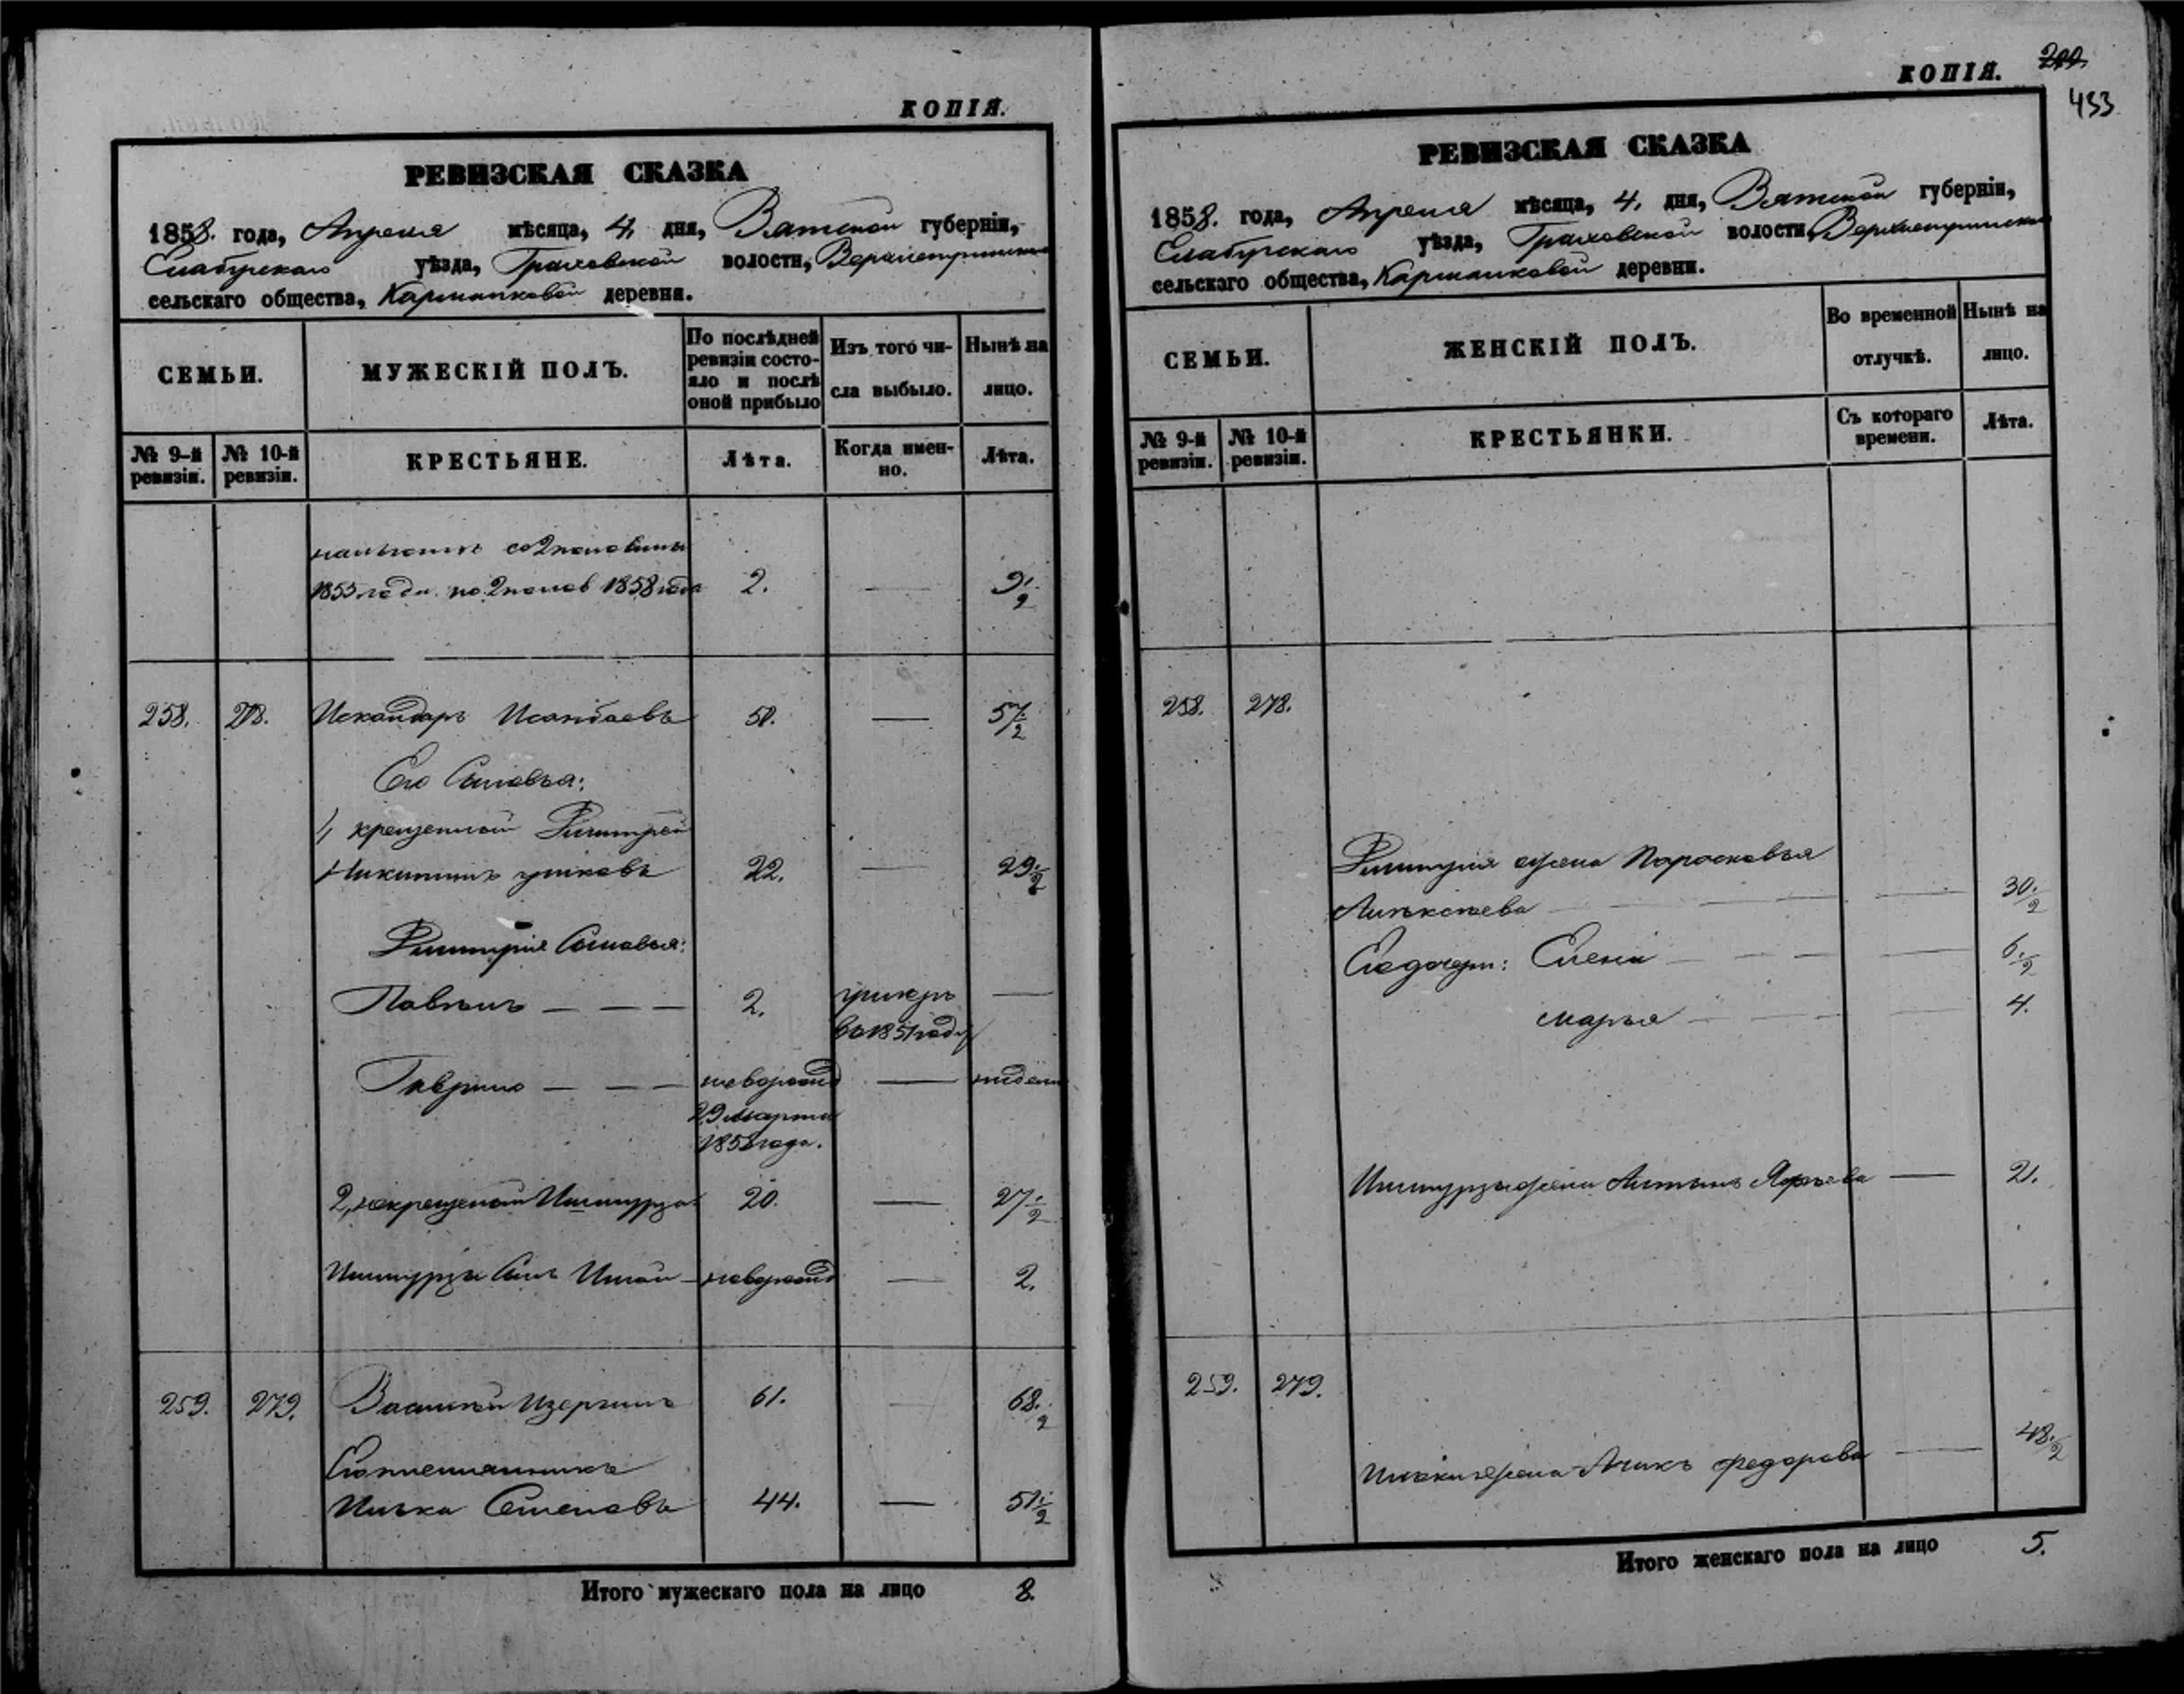 КОПІЯ.
РЕВИЗСКАЯ СКАЗКА
1858. года, Апреля мѣсяца, 4. дня, Вятской губерніи,
Елабугскаго уѣзда, Граховской волости,
сельскаго общества, Кармановой деревни.
СЕМЬИ.
МУЖЕСКІЙ ПОЛЪ.
По послѣдней ревизіи состояло и послѣ оной прибыло
Изъ того числа выбыло.
Нынѣ на лицо.
№ 9-й ревизіи.
№ 10-й ревизіи.
КРЕСТЬЯНЕ.
Лѣта.
Когда именно.
Лѣта.
со 2 половины
1855 года по 2 полов 1858 года 2. — 9 1/2
258. 278. Искандаръ Исанбаевъ 50. — 57 1/2
Его Сыновья:
1, крещенный Димитрей
Никитинъ 22. — 29 1/2
Димитрія Сыновья:
Павелъ — — — 2. —
во 1851 году
Гаврило — — — новорожд —
29 марта
1858 года.
2, некрещеный Ишмурза 20. — 27 1/2
Ишмурзы Сынъ — новорожд — 2.
259. 279. Василей Изергинъ 61. — 68 1/2
Его племянникъ
Семеновъ 44. — 51 1/2
Итого мужескаго пола на лицо 8.
КОПІЯ.
433
РЕВИЗСКАЯ СКАЗКА
1858. года, Апреля мѣсяца, 4. дня, Вятской губерніи,
Елабугскаго уѣзда, Граховской волости,
сельскаго общества, Кармановой деревни.
СЕМЬИ.
ЖЕНСКІЙ ПОЛЪ.
Во временной отлучкѣ.
Нынѣ на лицо.
№ 9-й ревизіи.
№ 10-й ревизіи.
КРЕСТЬЯНКИ.
Съ котораго времени.
Лѣта.
258. 278.
Димитрія жена Парасковья
Алексеева — — — — 30 1/2
Его дочери: Елена — — — — 6 1/2
Марья — — — 4.
Ишмурзы жена — 21.
259. 279.
жена Федорова — 48 1/2
Итого женскаго пола на лицо 5.